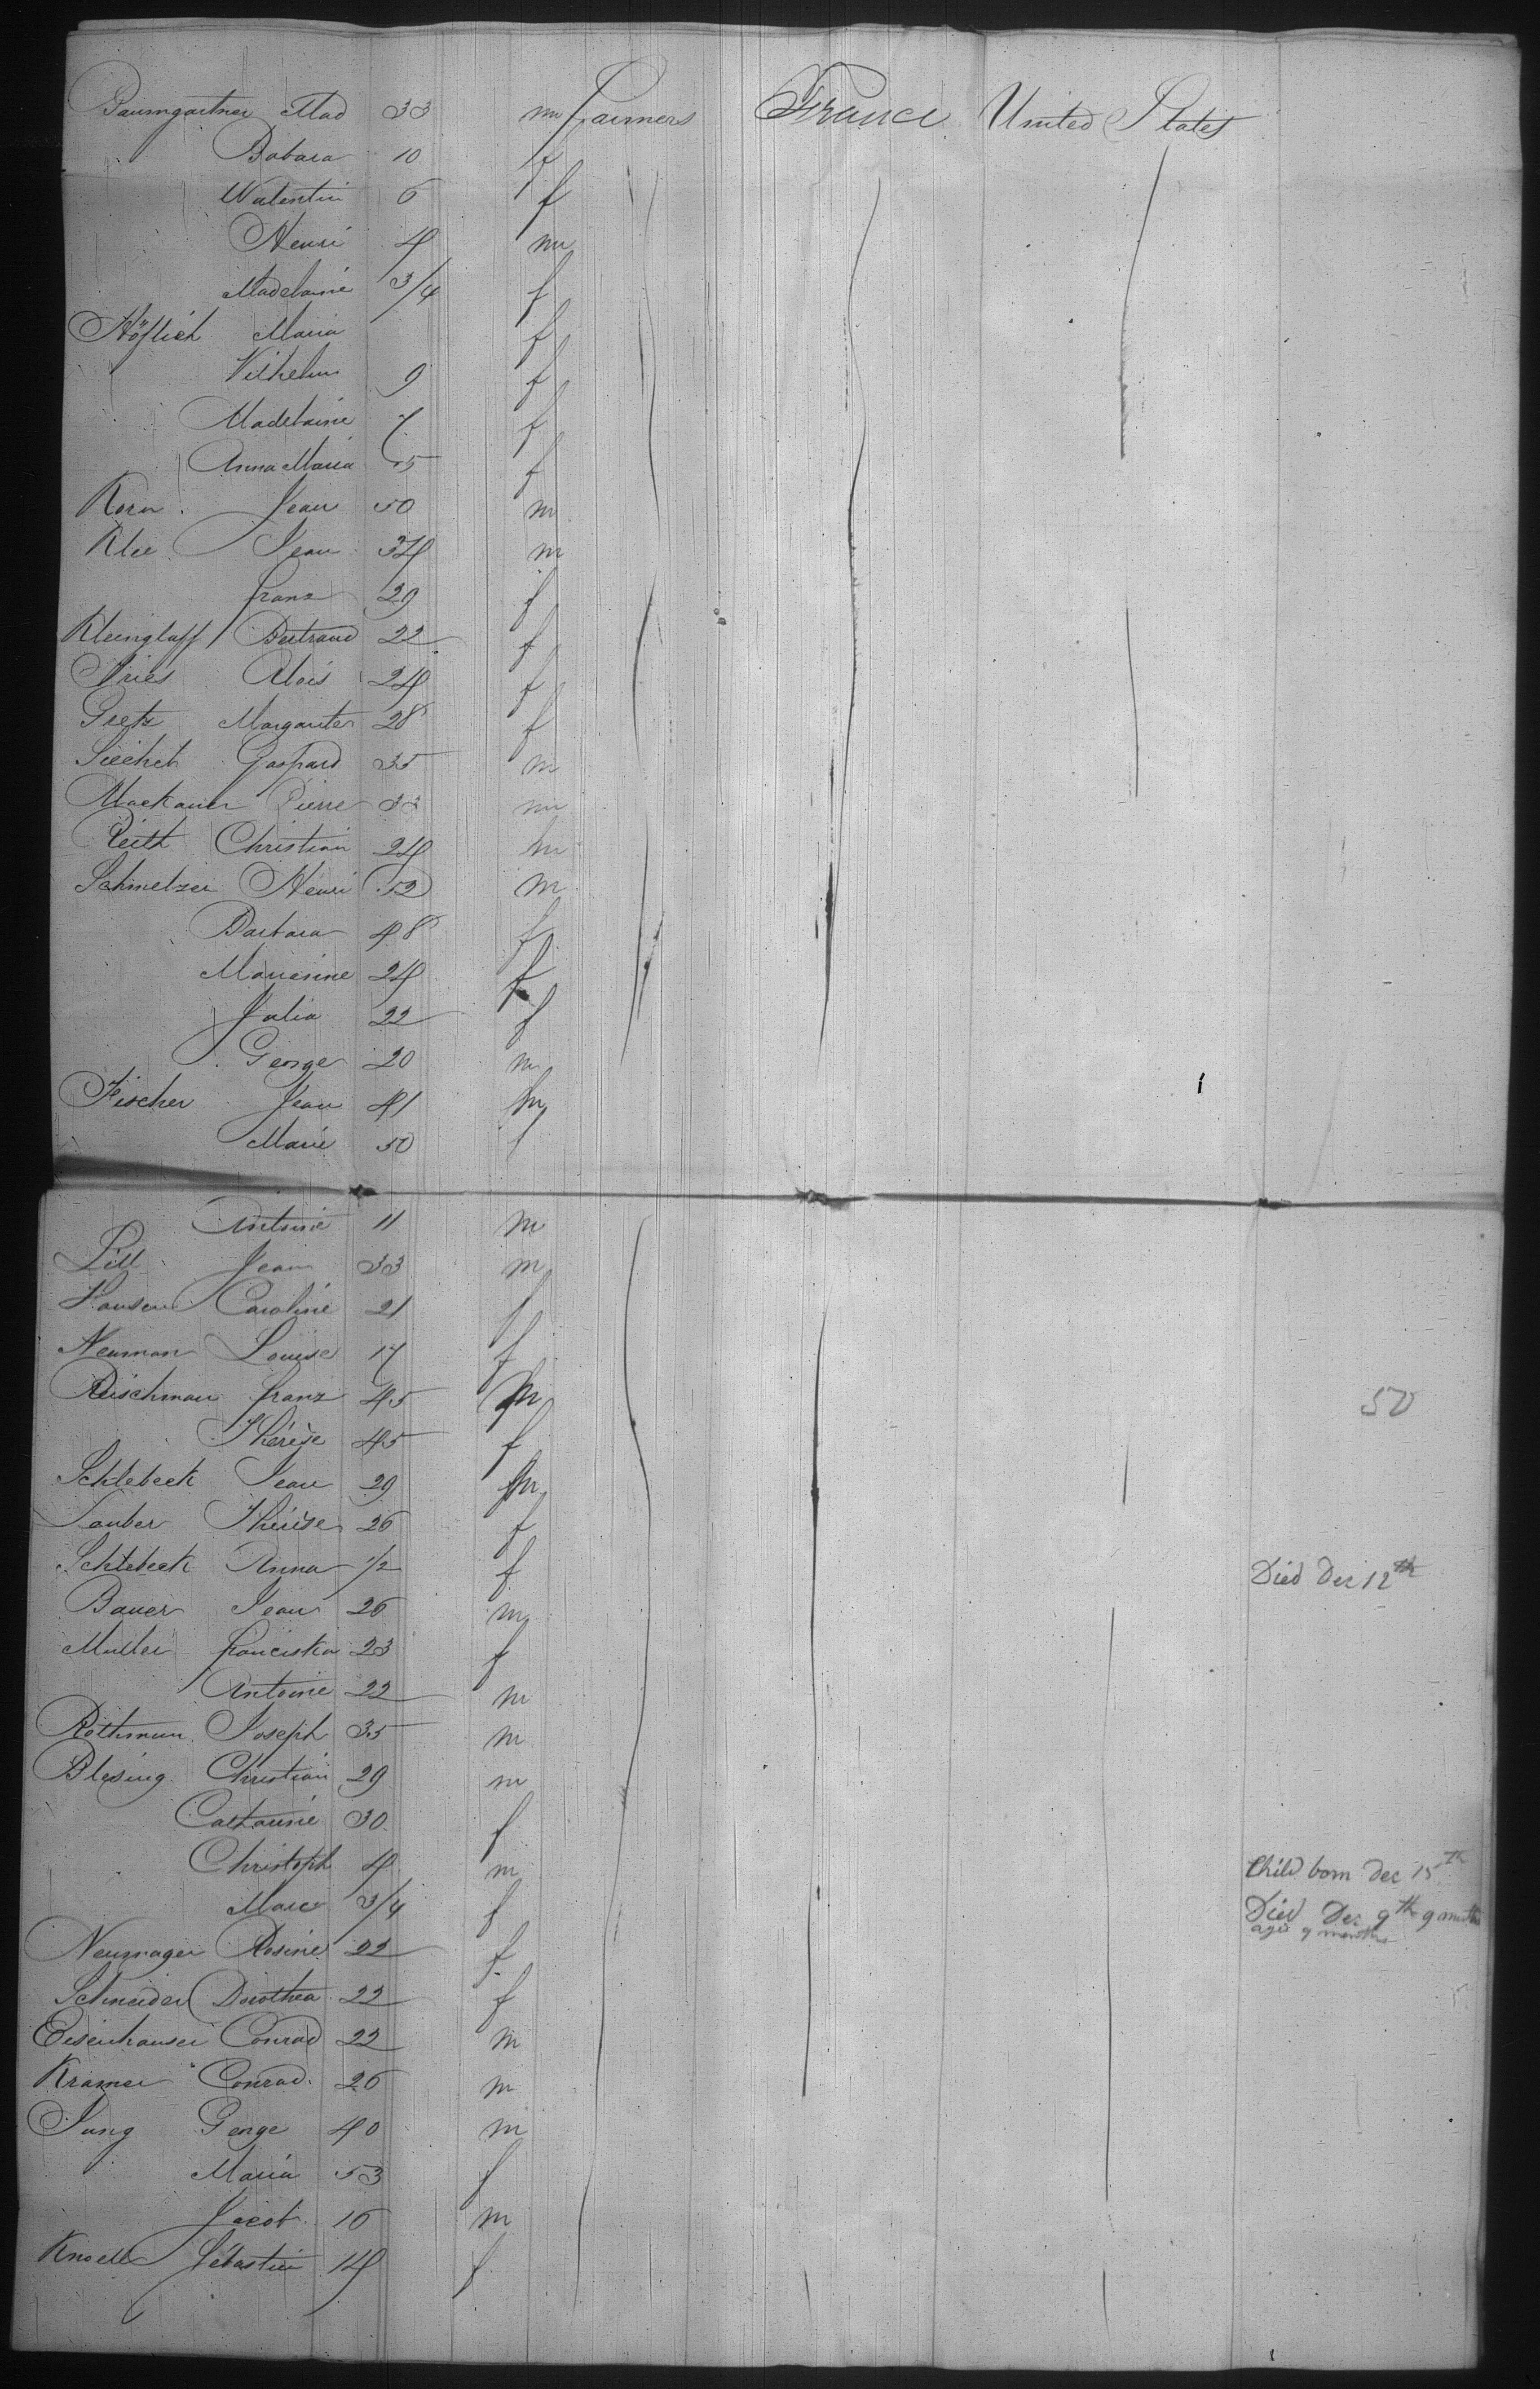 Baumgartner Mad 33 m Farmers France United States
Babara 10 f
Valentin 6 f
Henri 4 m
Madelaine 3/4 f
Höflich Maria f
Vilhelm 9 f
Madelaine 7 f
Anna Maria 5 f
Korn Jean 50 m
Klee Jean 34 m
franz 29 f
Kleinglaff Bertrand 22 f
Fries Alois 24 f
Gretz Margarite 28 f
Siechet Gaspard 35 m
Mackauer Pierre 33 m
Reith Christian 24 m
Schmelzer Henri 52 m
Barbara 48 f
Marienne 24 f
Julia 22 f
George 20 m
Fischer Jean 41 m
Marie 50 f
Antoine 11 m
Lill Jean 33 m
Hansen Caroline 21 f
Neuman Louise 17 f
Reischman franz 45 m 50
Thérèse 45 f
Schlebeck Jean 29 m
Tauber Thérèse 26 f
Schlebeck Anna 1/2 f Died Dec 12th
Bauer Jean 26 m
Muller franciska 23 f
Antoine 22 m
Rothmun Joseph 35 m
Blesing Christian 29 m
Catharine 30 f
Christoph 4 m Child born Dec 15th
Marc 3/4 f Died Dec 9th 9 months
age 9 months
Neumager Rosine 22 f
Schneider Dorothea 22 f
Eisenhauser Conrad 22 m
Kramer Conrad 26 m
Jung George 40 m
Maria 53 f
Jacob 16 m
Knoell Sebastien 14 f